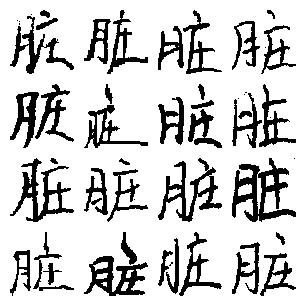 脏脏脏脏
脏脏脏脏
脏脏脏脏
脏脏脏脏